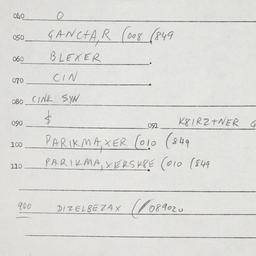 040 O
050 GANCTA,R (008 (849
060 BLEXER
070 CIN
080 CINK SYN
090 $ 091 K8IRZTNER G
100 PARIKMA,XER (010 (849
110 PARIKMA,XERSK8E (010 (849
900 DIZELBEZAX (